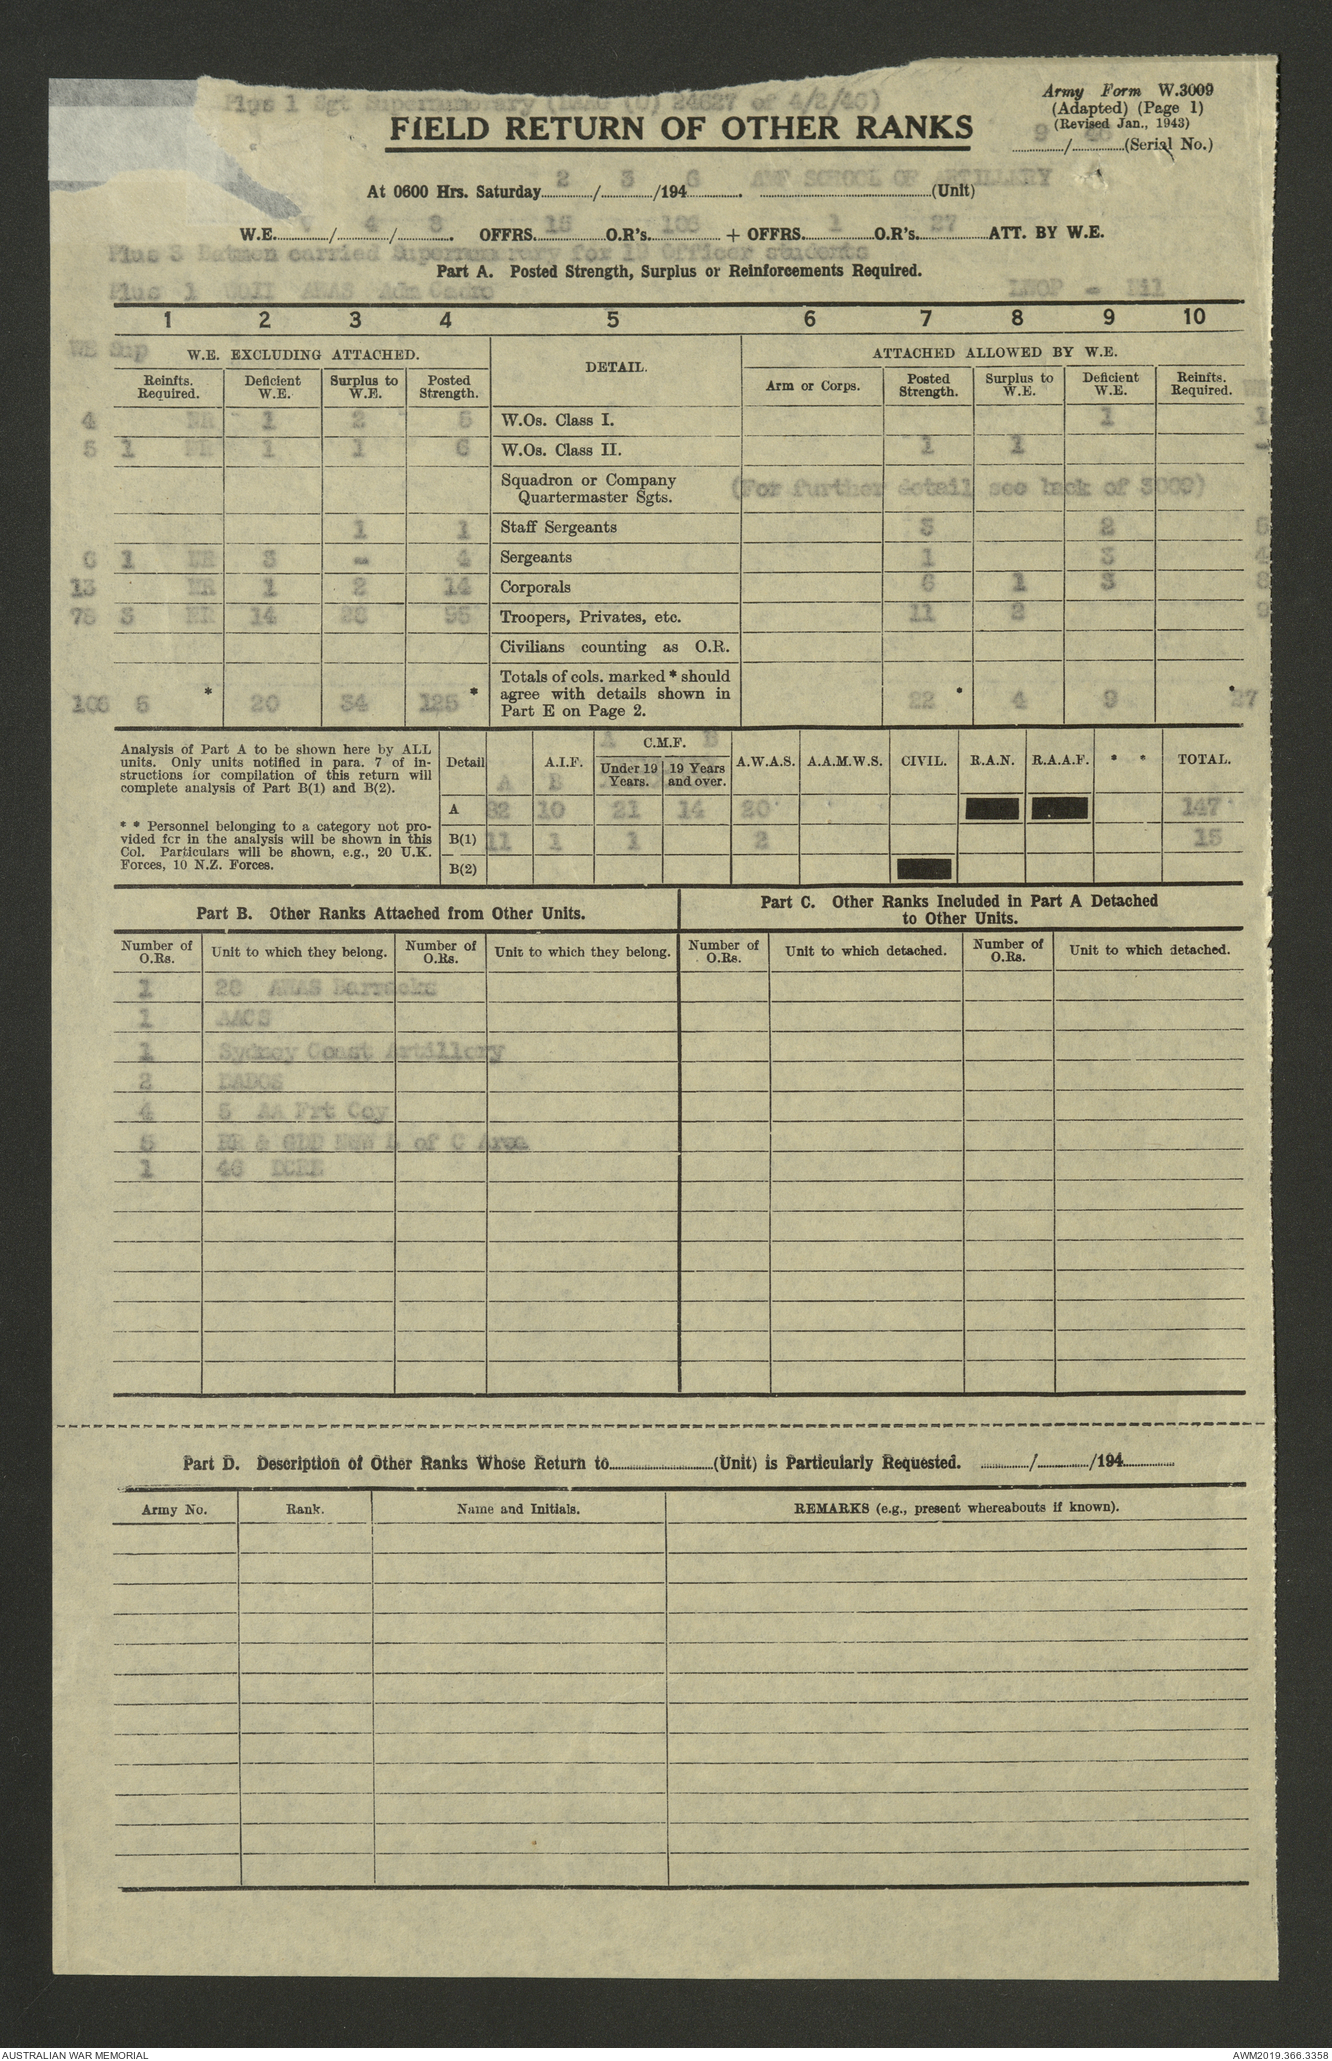 Plus 1 Sgt Supernumerary (LHQ (O) 24627 of 4/2/46)
Army Form W.3009
(Adapted) (Page 1)
(Revised Jan., 1943)
FIELD RETURN OF OTHER RANKS
9 / 46 (Serial No.)
At 0600 Hrs. Saturday 2 / 3 /194 6. AMF SCHOOL OF ARTILLERY (Unit)
W.E. V / 4 / 8. OFFRS. 15 O.R's. 106 + OFFRS. 1 O.R's. 27 ATT. BY W.E.
Plus 3 Batmen carried Supernumerary for 12 Officer students
Part A. Posted Strength, Surplus or Reinforcements Required.
Plus 1 WOII AWAS Adm Cadre
1 2 3 4 5 6 7 8 9 10
WE Sup W.E. EXCLUDING ATTACHED. DETAIL. ATTACHED ALLOWED BY W.E.
Reinfts. Required. Deficient W.E. Surplus to W.E. Posted Strength. Arm or Corps. Posted Strength. Surplus to W.E. Deficient W.E. Reinfts. Required.
4 NR 1 2 5 W.Os. Class I. 1 1
5 1 NR 1 1 6 W.Os. Class II. 1 1 -
Squadron or Company
Quartermaster Sgts. (For further detail see back of 3009)
1 1 Staff Sergeants 3 2 5
6 1 NR 3 - 4 Sergeants 1 3 4
13 NR 1 2 14 Corporals 6 1 3 8
78 3 NR 14 28 95 Troopers, Privates, etc. 11 2 9
Civilians counting as O.R.
Totals of cols. marked * should
agree with details shown in
Part E on Page 2.
106 5 * 20 34 125 * 22 * 4 9 * 27
Analysis of Part A to be shown here by ALL
units. Only units notified in para. 7 of in-
structions for compilation of this return will
complete analysis of Part B(1) and B(2).
* * Personnel belonging to a category not pro-
vided for in the analysis will be shown in this
Col. Particulars will be shown, e.g., 20 U.K.
Forces, 10 N.Z. Forces.
A B
Detail A.I.F. C.M.F. A.W.A.S. A.A.M.W.S. CIVIL. R.A.N. R.A.A.F. * * TOTAL.
Under 19 Years. 19 Years and over.
A B
A 82 10 21 14 20 147
B(1) 11 1 1 2 15
B(2)
Part B. Other Ranks Attached from Other Units.
Part C. Other Ranks Included in Part A Detached
to Other Units.
Number of O.Rs. Unit to which they belong. Number of O.Rs. Unit to which they belong. Number of O.Rs. Unit to which detached. Number of O.Rs. Unit to which detached.
1 28 AWAS Barracks
1 AACS
1 Sydney Coast Artillery
2 DADOS
4 5 AA Frt Coy
5 RR & GDD NSW L of C Area
1 46 DCRE
Part D. Description of Other Ranks Whose Return to (Unit) is Particularly Requested. / /194
Army No. Rank. Name and Initials. REMARKS (e.g., present whereabouts if known).
AUSTRALIAN WAR MEMORIAL
AWM2019.366.3358